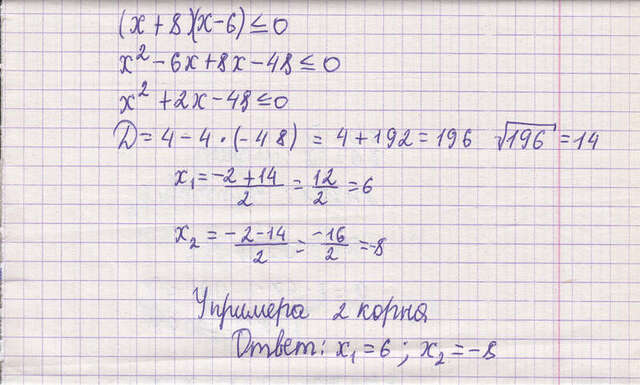 (x+8)(x-6)≤0
x²-6x+8x-48≤0
x²+2x-48≤0
D=4-4·(-48) = 4+192=196 √196=14
x₁=(-2+14)/2=12/2=6
x₂=(-2-14)/2=-16/2=-8
У примера 2 корня
Ответ: x₁=6; x₂=-8